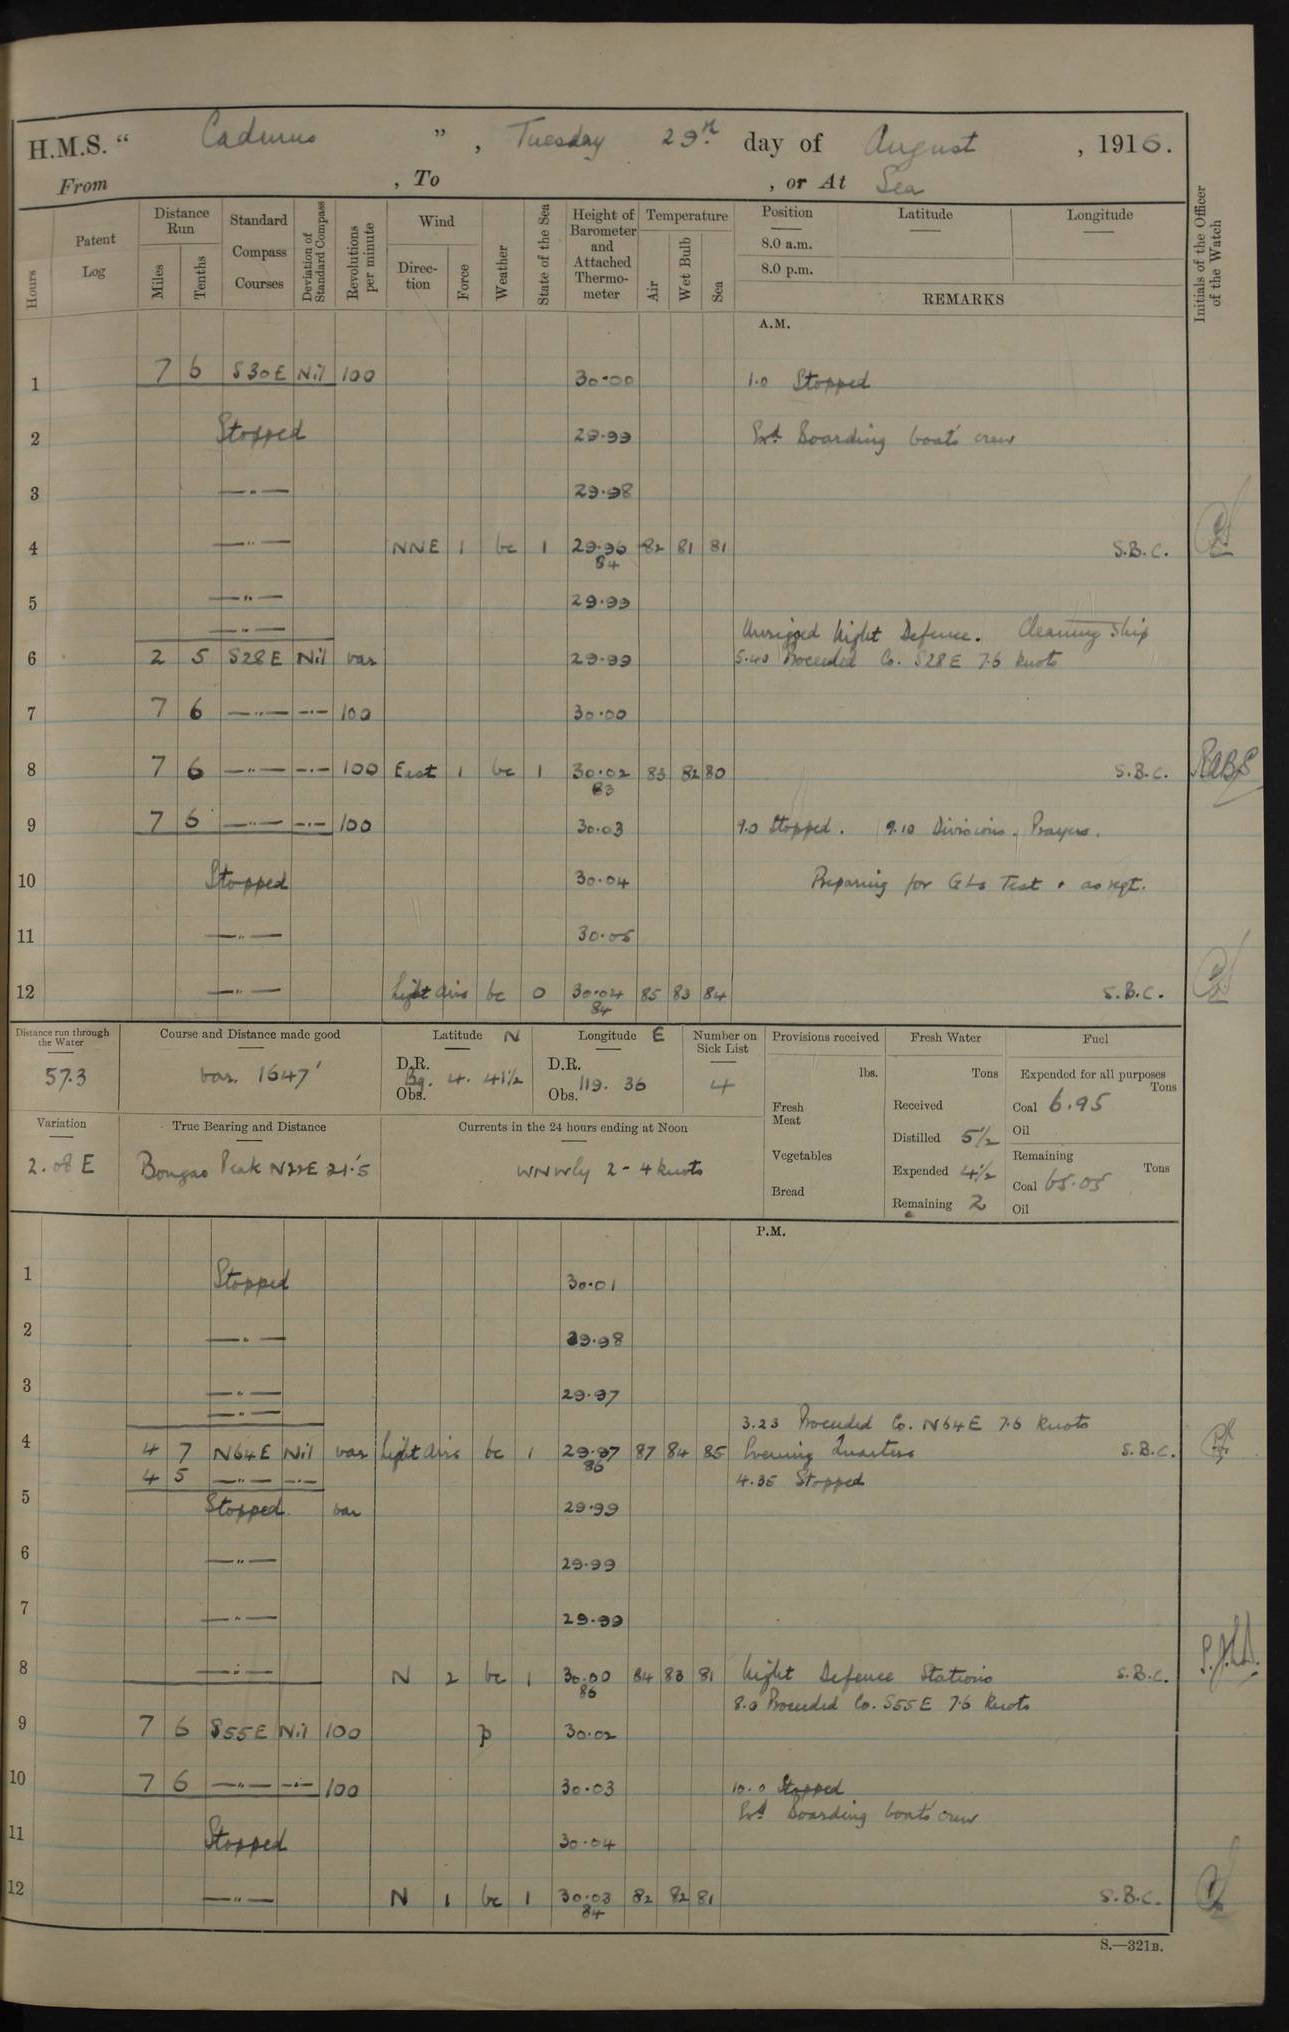 H.M.S. “ Cadmus ”, Tuesday 29th day of August , 1916.
From , To , or At Sea
Hours
Patent Log
Distance Run
Miles
Tenths
Standard Compass Courses
Deviation of Standard Compass
Revolutions per minute
Wind
Direction
Force
Weather
State of the Sea
Height of Barometer and Attached Thermometer
Temperature
Air
Wet Bulb
Sea
Position
8.0 a.m.
8.0 p.m.
Latitude
Longitude
REMARKS
Initials of the Officer of the Watch
A.M.
1 7 6 S30E Nil 100 30.00 1.0 Stopped
2 Stopped 29.99 Boarding boat's crew
3 —"— 29.98
4 —"— NNE 1 bc 1 29.96 82 81 81 S.B.C.
84
5 —"— 29.99
—"— Unrigged Night Defence. Cleaning Ship
6 2 5 S28E Nil var 29.99 5.40 Proceeded Co. S28E 7.6 knots
7 7 6 —"— —"— 100 30.00
8 7 6 —"— —"— 100 East 1 bc 1 30.02 83 82 80 S.B.C.
83
9 7 6 —"— —"— 100 30.03 9.0 Stopped. 9.10 Divisions. Prayers.
10 Stopped 30.04 Preparing for GLs Test & as reqt.
11 —"— 30.05
12 —"— Light airs bc 0 30.04 85 83 84 S.B.C.
84
Distance run through the Water
57.3
Course and Distance made good
var. 1647'
Latitude N
D.R.
Obs.
Bg. 4. 41½
Longitude E
D.R.
Obs. 119. 36
Number on Sick List
4
Provisions received
lbs.
Fresh Meat
Vegetables
Bread
Fresh Water
Tons
Received
Distilled 5½
Expended 4½
Remaining 2
Fuel
Expended for all purposes
Tons
Coal 6.95
Oil
Remaining
Tons
Coal 65.05
Oil
Variation
2.08 E
True Bearing and Distance
Bongao Peak N22E 21'.5
Currents in the 24 hours ending at Noon
WNWly 2-4 knots
P.M.
1 Stopped 30.01
2 —"— 29.98
3 —"— 29.97
—"— 3.23 Proceeded Co. N64E 7.6 knots
4 4 7 N64E Nil var Light airs bc 1 29.97 87 84 85 Evening Quarters S.B.C.
86
4 5 —"— —"— 4.35 Stopped
5 Stopped var 29.99
6 —"— 29.99
7 —"— 29.99
8 —"— N 2 bc 1 30.00 84 83 81 Night Defence Stations S.B.C.
86
8.0 Proceeded Co. S55E 7.6 knots
9 7 6 S55E Nil 100 p 30.02
10 7 6 —"— —"— 100 30.03 10.0 Stopped
Boarding boat's crew
11 Stopped 30.04
12 —"— N 1 bc 1 30.03 82 82 81 S.B.C.
84
S.—321B.